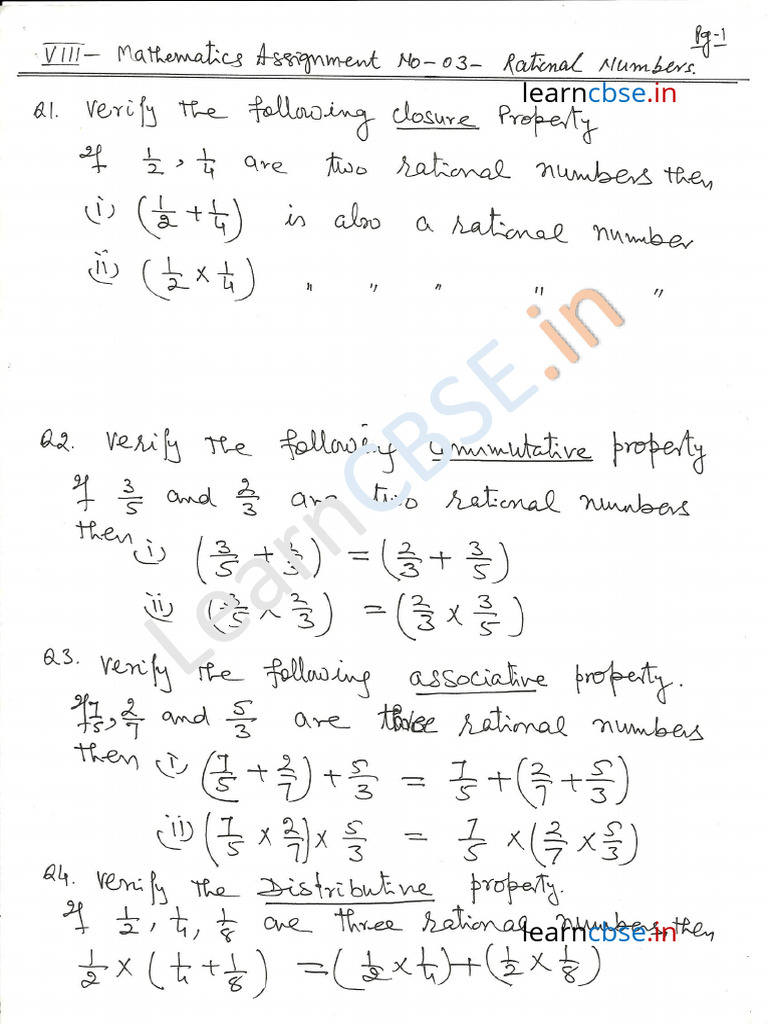 Pg-1
VIII - Mathematics Assignment No-03- Rational Numbers.
learncbse.in
Q1. Verify the following closure Property
If 1/2, 1/4 are two rational numbers then
i) (1/2 + 1/4) is also a rational number
ii) (1/2 × 1/4) " " " " "
LearnCBSE.in
Q2. Verify the following commutative property
If 3/5 and 2/3 are two rational numbers
then i) (3/5 + 2/3) = (2/3 + 3/5)
ii) (3/5 × 2/3) = (2/3 × 3/5)
Q3. Verify the following associative property.
If 7/5, 2/7 and 5/3 are three rational numbers
then i) (7/5 + 2/7) + 5/3 = 7/5 + (2/7 + 5/3)
ii) (7/5 × 2/7) × 5/3 = 7/5 × (2/7 × 5/3)
Q4. Verify the Distributive property.
If 1/2, 1/4, 1/8 are three rational numbers, then
learncbse.in
1/2 × (1/4 + 1/8) = (1/2 × 1/4) + (1/2 × 1/8)